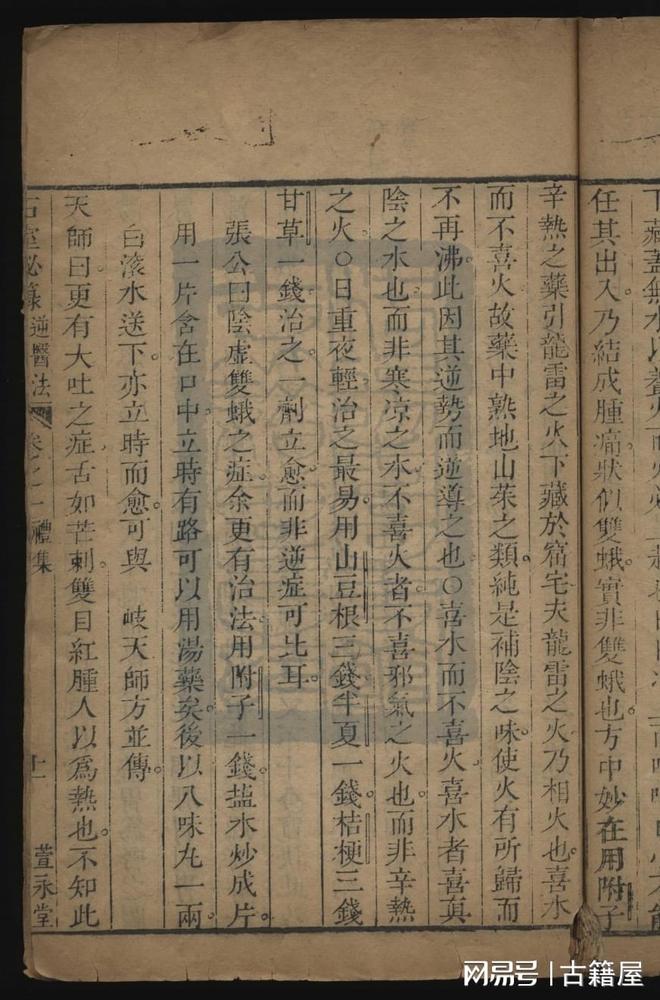 下藏蓋無水以養火而火必
任其出入乃結成腫痛狀似雙蛾實非雙蛾也方中妙在用附子
辛熱之藥引龍雷之火下藏於窟宅夫龍雷之火乃相火也喜水
而不喜火故藥中熟地山茱之類純是補陰之味使火有所歸而
不再沸此因其逆勢而逆導之也○喜水而不喜火喜水者喜真
陰之水也而非寒凉之水不喜火者不喜邪氣之火也而非辛熱
之火○日重夜輕治之最易用山豆根三錢半夏一錢桔梗三錢
甘草一錢治之一劑立愈而非逆症可比耳
張公曰陰虛雙蛾之症余更有治法用附子一錢盐水炒成片
用一片含在口中立時有路可以用湯藥矣後以八味丸一兩
白滚水送下亦立時而愈可與 岐天師方並傳
天師曰更有大吐之症舌如芒刺雙目紅腫人以爲熱也不知此
石室秘籙 逆醫法 卷之一 禮集 十一 萱永堂
网易号 | 古籍屋